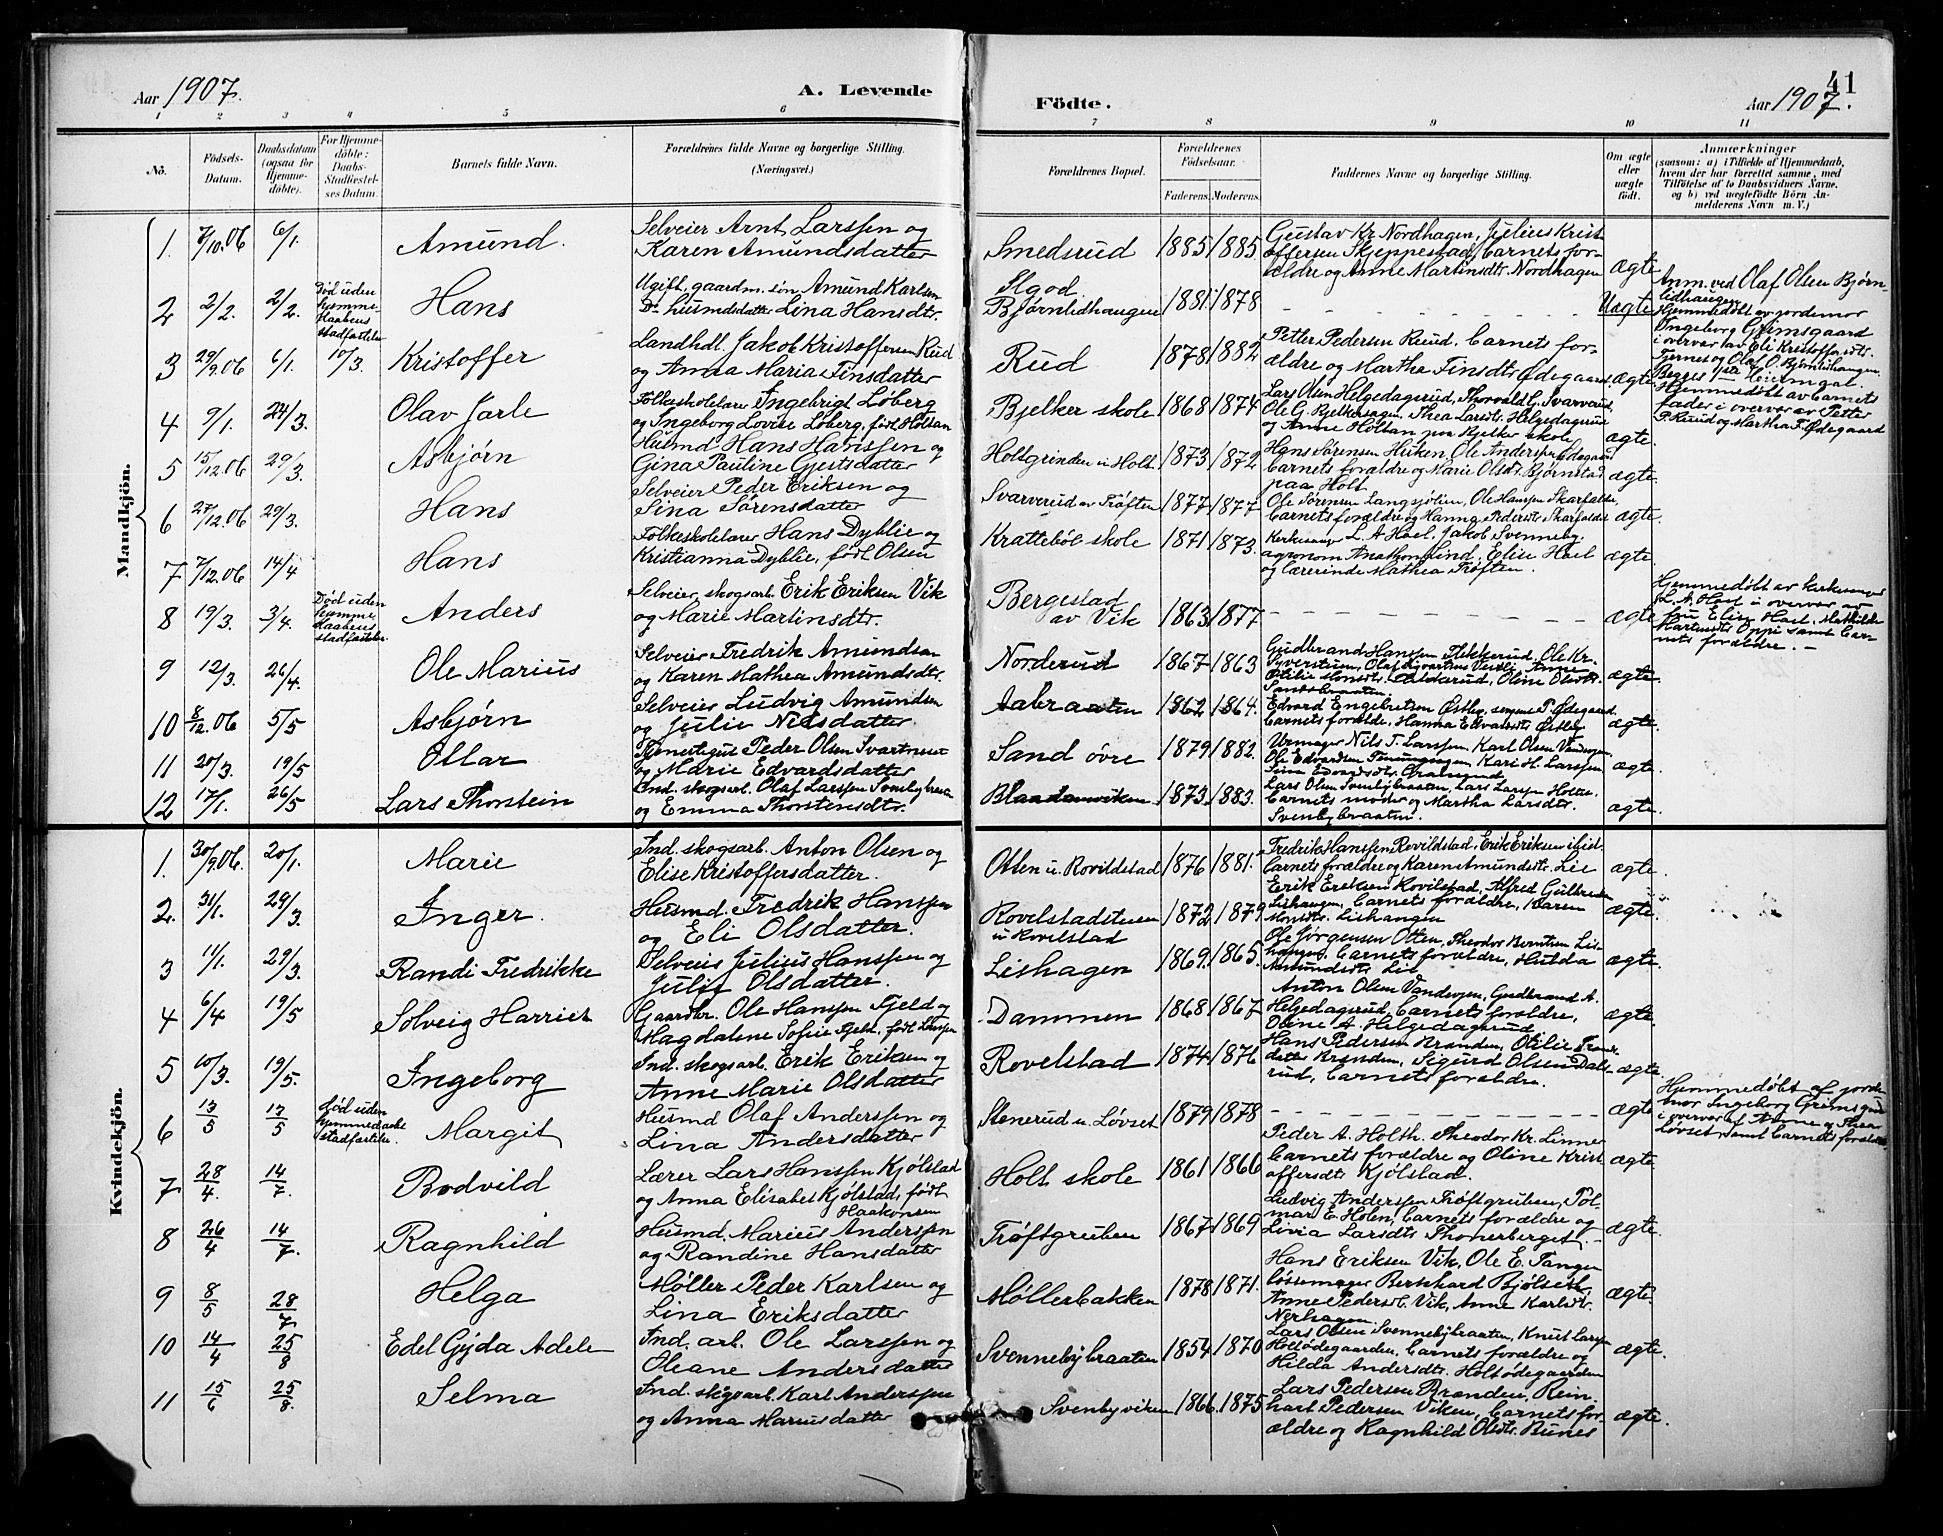 Aar 1907.
A. Levende
Födte.
41
Aar 1907.
1 2 3 4 5 6 7 8 9 10 11
No.
Födsels-Datum.
Daabsdatum (ogsaa for Hjemme-döbte).
For Hjemme-döbte: Daabs-Stadfæstel-ses Datum.
Barnets fulde Navn.
Forældrenes fulde Navne og borgerlige Stilling. (Næringsvei.)
Forældrenes Bopæl.
Forældrenes Födselsaar.
Faderens. Moderens.
Faddernes Navne og borgerlige Stilling.
Om ægte eller uægte født.
Anmærkninger
(saasom: a) i Tilfælde af Hjemmedaab, hvem der har forrettet samme, med Tilföielse af to Daabsvidners Navne, og b) ved uægtefödte Börn An-melderens Navn m. V.)
Mandkjön.
1. 7/10.06 6/1. Amund. Selveier Arnt Larssen og
Karen Amundsdatter Smedsrud 1885 1885. Gustav Kr. Nordhagen, Julius Krist
offersen Skjeppestad, barnets for-
ældre og Anne Martinsdtr. Nordhagen ægte.
2 2/2. 2/2. Død uden hjemme-daabens stadfæstelse Hans Ugift, gaardm. søn Amund Karlsen
Do husmdsdatter Lina Hansdtr. Elgod
Bjørnlidhaugen 1881. 1878 Uægte Anm. ved Olaf Olsen Bjørn-
lidhaugen
Hjemmedøbt av jordemor
Ingeborg Grimsgaard
i overvær av Eli Kristoffersdtr.
Tjernes og Olaf O. Bjørnlidhaugen.
Begges 1ste Leiermaal.
3 29/9.06 6/1. 10/3. Kristoffer Landhdl. Jakob Kristoffersen Rud
og Anna Maria Finsdatter Rud 1878 1882 Petter Pedersen Ruud, barnets for-
ældre og Martha Finsdtr Ødegaard ægte. Hjemmedøbt av barnets
fader i overvær av Petter
P. Ruud og Martha F. Ødegaard
4 9/1. 24/3. Olav Jarle Folkeskolelærer Ingebrigt Løberg
og Ingeborg Lovise Løberg, født Holtan Bjelker skole 1868 1874 Lars Olsen Helgedagsrud, Thorvald G. Svarverud,
Ole G. Bjelkersagen, Thea Larsdtr. Helgedagsrud
og Anne Holtan paa Bjelker skole ægte.
5 15/12.06 29/3. Asbjørn Husmd Hans Hanssen og
Gina Pauline Gjertsdatter Holtgrinden u. Holt 1873 1872 Hans Sørensen Husken, Ole Anderssen Ødegaard
barnets forældre og Marie Olsdtr. Bjørnstad
paa Holt ægte.
6 27/12.06 29/3. Hans Selveier Peder Eriksen og
Lina Sørensdatter Svarverud av Trøften 1877 1877 Ole Sørensen Langsjølien, Ole Hanssen Skarfaldet,
barnets forældre og Hanna Pedersdtr Skarfaldet ægte.
7 7/12.06 14/4 Hans Folkeskolelærer Hans Dyblie og
Kristianna Dyblie, født Olsen Kratteböl skole 1871 1873. Kirkesanger L. A. Hoel, Jakob Svenneby,
agronom Lind, Elise Hoel
og lærerinde Mathea Trøften. ægte.
8 19/3. 3/4. Død uden hjemme-daabens stadfæstelse Anders Selveier, skogsarb. Erik Eriksen Vik
og Marie Martinsdtr. Bergestad
av Vik 1863 1877 ægte Hjemmedøbt av kirkesanger
L. A. Hoel i overvær av
fru Elise Hoel, Mathilde
Martinsdtr Oppi samt bar-
nets forældre.
9 12/3. 26/4. Ole Marius Selveier Fredrik Amundsen
og Karen Mathea Amundsdtr. Norderud 1867 1863 Gudbrand Hanssen Flikkerud, Ole Kr. ægte.
10 8/12 06 5/5 Asbjørn Selveier Ludvig Amundsen
og Julie Nilsdatter. Aabraaten 1862 1864. Edvard Engebretsen Østby, P. Ødegaard,
barnets forældre, Hanna Edvardsdtr Østby ægte.
11 20/3. 19/5 Ottar Peder Olsen Svartnesset
og Marie Edvardsdatter Sand øvre 1879 1882. Urmager Nils T. Larssen, Karl Olsen Vandvogen,
Ole Edvardsen, Kari H. Larssen, ægte.
12 17/1. 26/5 Lars Thorstein Ind. skogsarb. Olaf Larssen Svenbybraaten
og Emma Thorstensdtr. 1873. 1883. Lars Olsen Svenbybraaten, Lars Larssen Holtet,
barnets moder og Martha Larsdtr.
Svenbybraaten. ægte.
Kvindekjön.
1. 30/9.06. 20/1. Marie Ind. skogsarb. Anton Olsen og
Elise Kristoffersdatter. Otten u. Rovildstad 1876 1881. Fredrik Hanssen Rovildstad, Erik Eriksen ibid.
barnets forældre og Karen Amundsdtr. Lie ægte.
2. 31/1. 29/3. Inger. Husmd. Fredrik Hanssen
og Eli Olsdatter. Rovelstadstuen
u. Rovilstad 1872 1879 Erik Eriksen Rovilstad, Alfred Gulbrandsen
Lishaugen, barnets forældre, Karen
Monsdtr. Lishaugen ægte.
3 11/1. 29/3. Randi Fredrikke Selveier Julius Hanssen og
Julie Olsdatter. Lishagen 1869. 1865. Ole Jørgensen Otten, Theodor Berntsen Lis-
haugen, barnets forældre, Hulda
Amundsdtr Lie ægte.
4 6/4 19/5 Solveig Harriet Gaardbr. Ole Hanssen Fjeld og
Magdalene Sofie Fjeld, født Larssen Dammen 1868 1867 Anton Olsen Vandvogen, Gudbrand A.
Helgedagsrud, barnets forældre,
Oline A. Helgedagsrud ægte.
5 10/3. 19/5. Ingeborg Ind. skogsarb. Erik Eriksen og
Anne Marie Olsdatter Rovelstad 1874 1876 Hans Pedersen Brænden, Otilie
Brænden, Sigurd Olsen Dals-
rud, barnets forældre. ægte.
6 13/5 13/5 Død uden hjemmedaabs stadfæstelse. Margit Husmd Olaf Anderssen og
Lina Andersdatter Stenerud u. Løvset 1879 1878 ægte Hjemmedøbt af jorde-
mor Ingeborg Grimsgaard
i overvær af Anne og Thea
Løvset samt barnets forældre
7 28/4. 14/7. Bodvild Lærer Lars Hanssen Kjølstad
og Anna Elisabet Kjølstad, født
Haakonsen Holt skole 1861 1866 Peder A. Holth, Theodor Kr. Linner
barnets forældre og Oline Krist
offersdtr Kjølstad. ægte.
8 26/4 14/7. Ragnhild Husmd. Marius Anderssen
og Randine Hansdatter Trøftgruben 1867 1869 Ludvig Anderssen Trøftgruben, Tol-
mar E. Holen, barnets forældre og
Livia Larsdtr Thonerberget. ægte.
9 8/5 28/7 Helga Møller Peder Karlsen og
Lina Eriksdatter Møllerbakken 1878 1871. Hans Eriksen Vik, Ole E. Tangen
Bernhard Bjølset,
Anne Pedersdtr. Vik, Anne Karlsdtr.
Norhagen. ægte.
10 14/4 25/8 Edel Gyda Adele Ind. arb. Ole Larssen og
Oleane Andersdatter Svennebybraaten 1854 1870 Lars Olsen Svennebybraaten, Knut Larssen
Holtødegaarden, barnets forældre og
Hilda Andersdtr. Holtødegaarden ægte.
11 15/6 25/8. Selma Ind. skogsarb. Karl Anderssen
og Anna Mariusdatter Svenbyviken 1866. 1875 Lars Pedersen Brænden, Rein-
hart Pedersen Viken, barnets for-
ældre og Ragnhild Olsdtr. Bunes ægte.